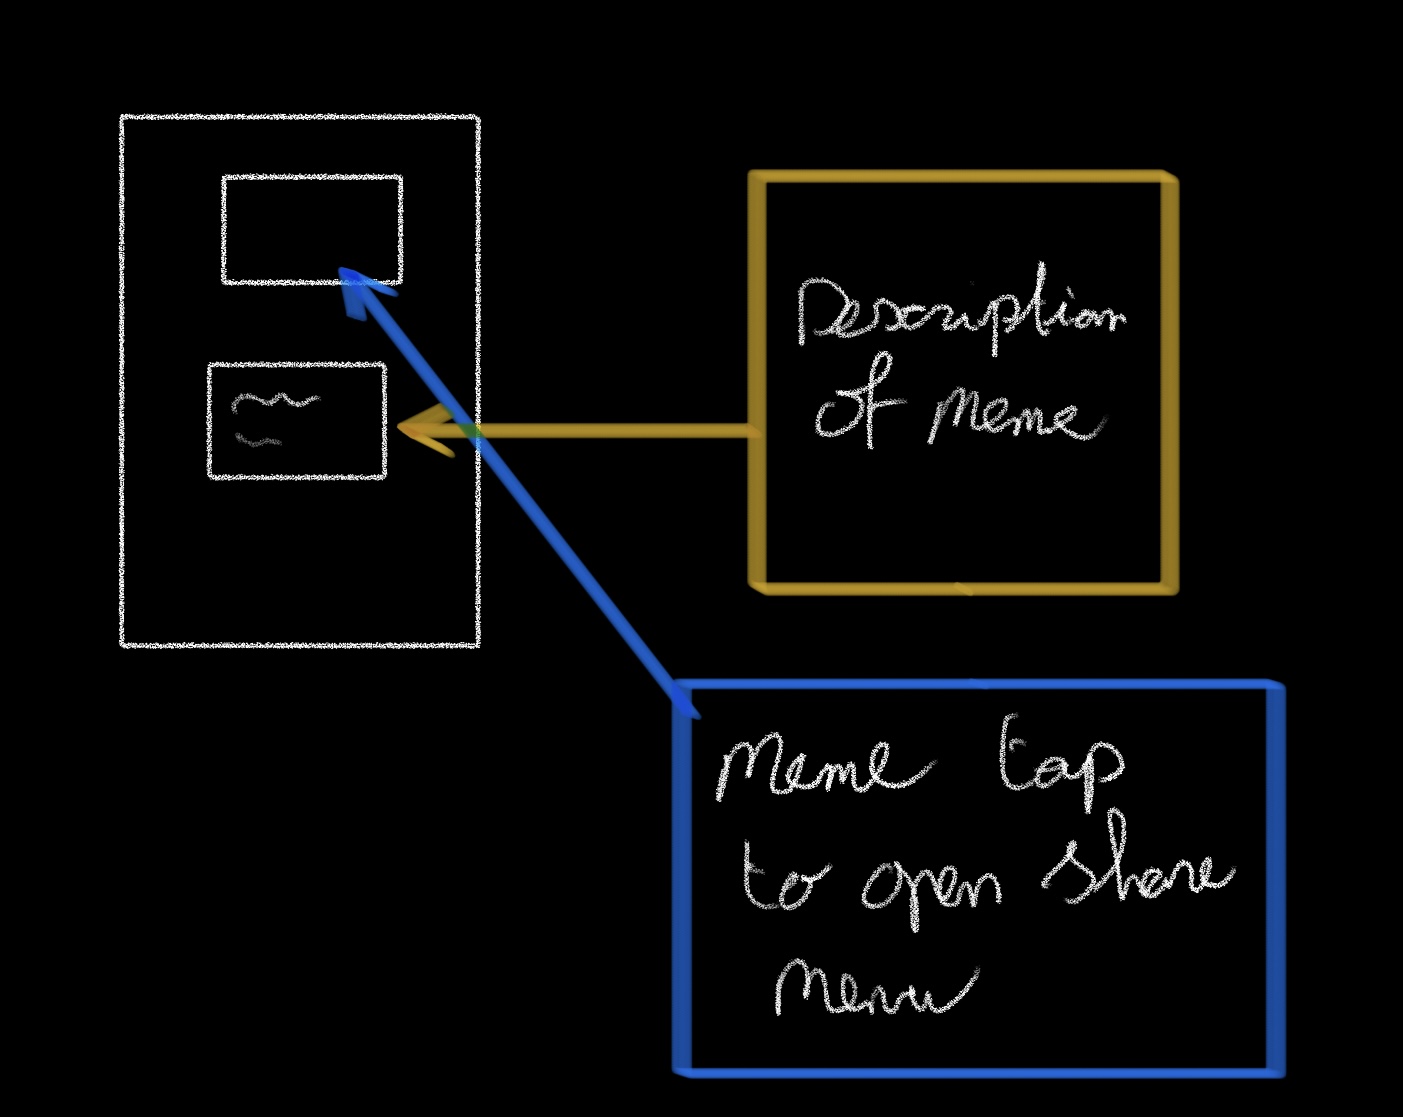 Description
of Meme
Meme tap
to open share
Menu